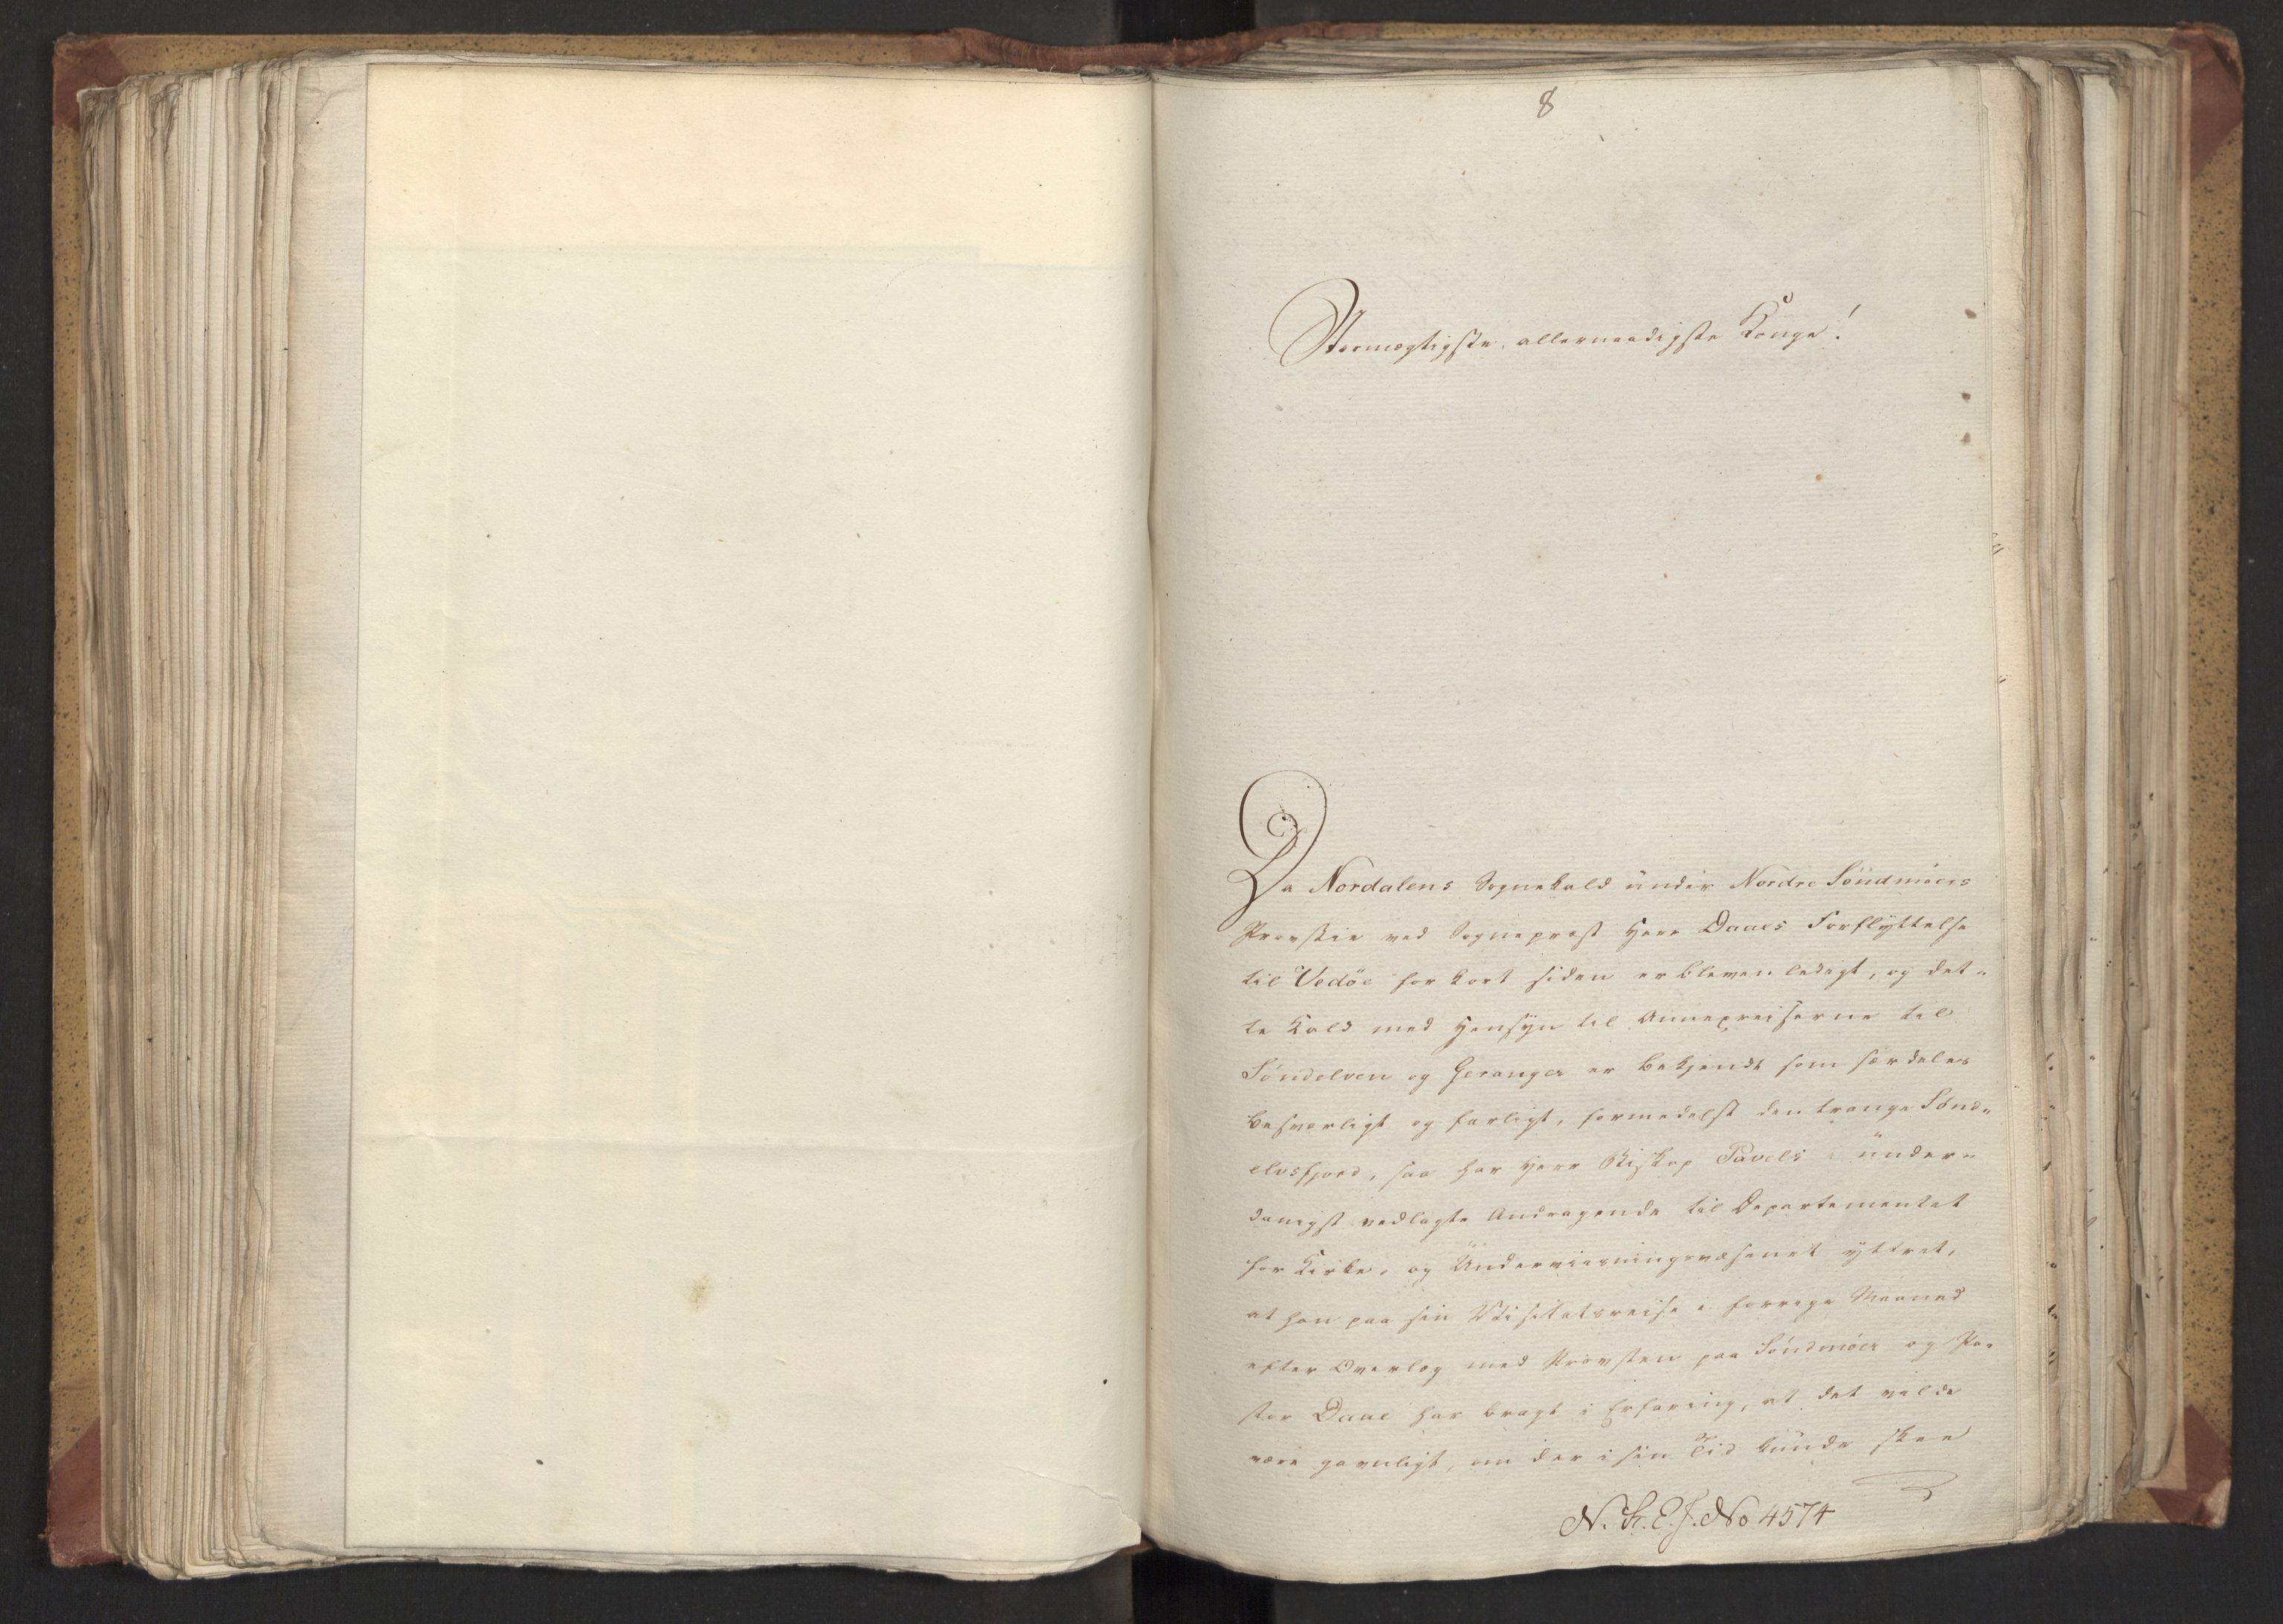 8
Stormægtigste, allernaadigste Konge!
Da Nordalens Sognekald under Nordre Søndmøers
Provstie ved Sognepræst Herr Daaes Forflyttelse
til Vedøe for kort siden er bleven ledigt, og det-
te Kald med Hensyn til Annexreiserne til
Søndelven og Geranger er bekjendt som særdeles
besværligt og farligt, formedelst den trange Sønd-
elvsfjord, saa har Herr Biskop Pavels i under-
danigst vedlagte Andragende til Departementet
for Kirke- og Underviisningsvæsenet yttret,
at han paa sin Visitatsreise i forrige Maaned
efter Overlæg med Provsten paa Søndmøer og Pa-
stor Daae har bragt i Erfaring, at det vilde
være gavnligt, om der i sin Tid kunde skee
N. K. E. J. No 4574